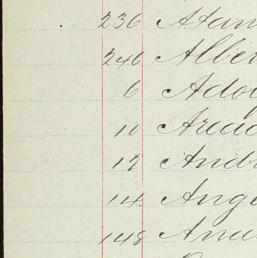 236 Atan
246 Alber
6 Adol
10 Arcad
12 Andr
14 Ange
148 Ana